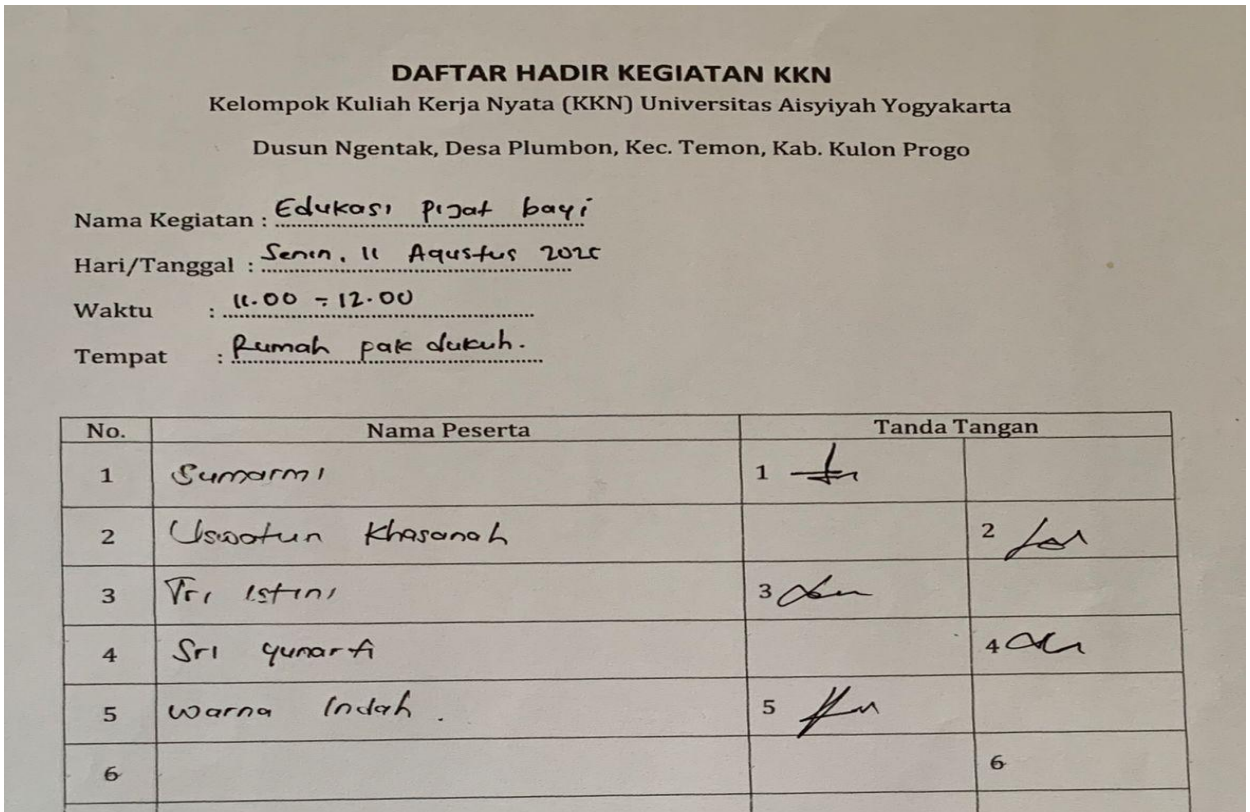 DAFTAR HADIR KEGIATAN KKN
Kelompok Kuliah Kerja Nyata (KKN) Universitas Aisyiyah Yogyakarta
Dusun Ngentak, Desa Plumbon, Kec. Temon, Kab. Kulon Progo
Nama Kegiatan : Edukasi pijat bayi
Hari/Tanggal : Senin, 11 Agustus 2025
Waktu : 11.00 - 12.00
Tempat : Rumah pak dukuh.
No. Nama Peserta Tanda Tangan
1 Sumarmi 1
2 Uswatun Khasanah 2
3 Tri Istini 3
4 Sri yunarti 4
5 Warna Indah . 5
6 6